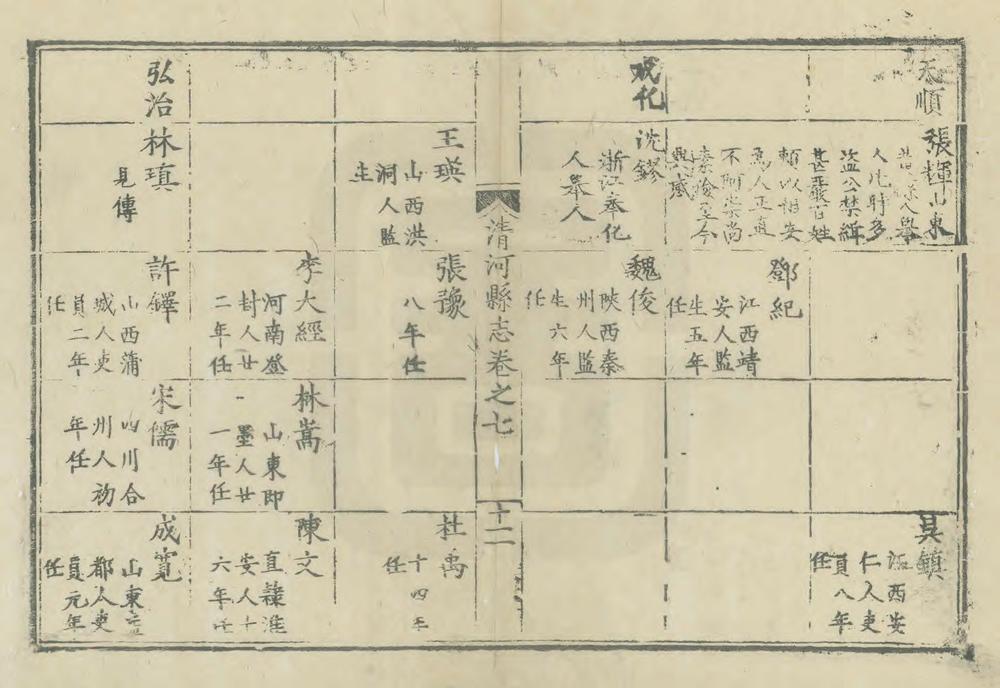 天順
張輝山東
人此時多
盜公禁緝
甚嚴百姓
賴以相安
為人正直
不阿崇尚
素儉至今
鄧紀
江西靖
安人監
生五年
任
吳鎮
江西安
仁人吏
員八年
任
成化
沈鏐
浙江奉化
人舉人
魏俊
陝西秦
州人監
生六年
任
清河縣志卷之七
十二
王瑛
山西洪
洞人監
生
張豫
八年任
杜禹
十四年
任
李大經
河南登
封人廿
二年任
林嵩
山東即
墨人廿
一年任
陳文
直隸淮
安人十
六年任
弘治
林瑱
見傳
許鐸
山西蒲
城人吏
員二年
任
宋儒
四川合
州人初
年任
成寬
山東
都人吏
員元年
任